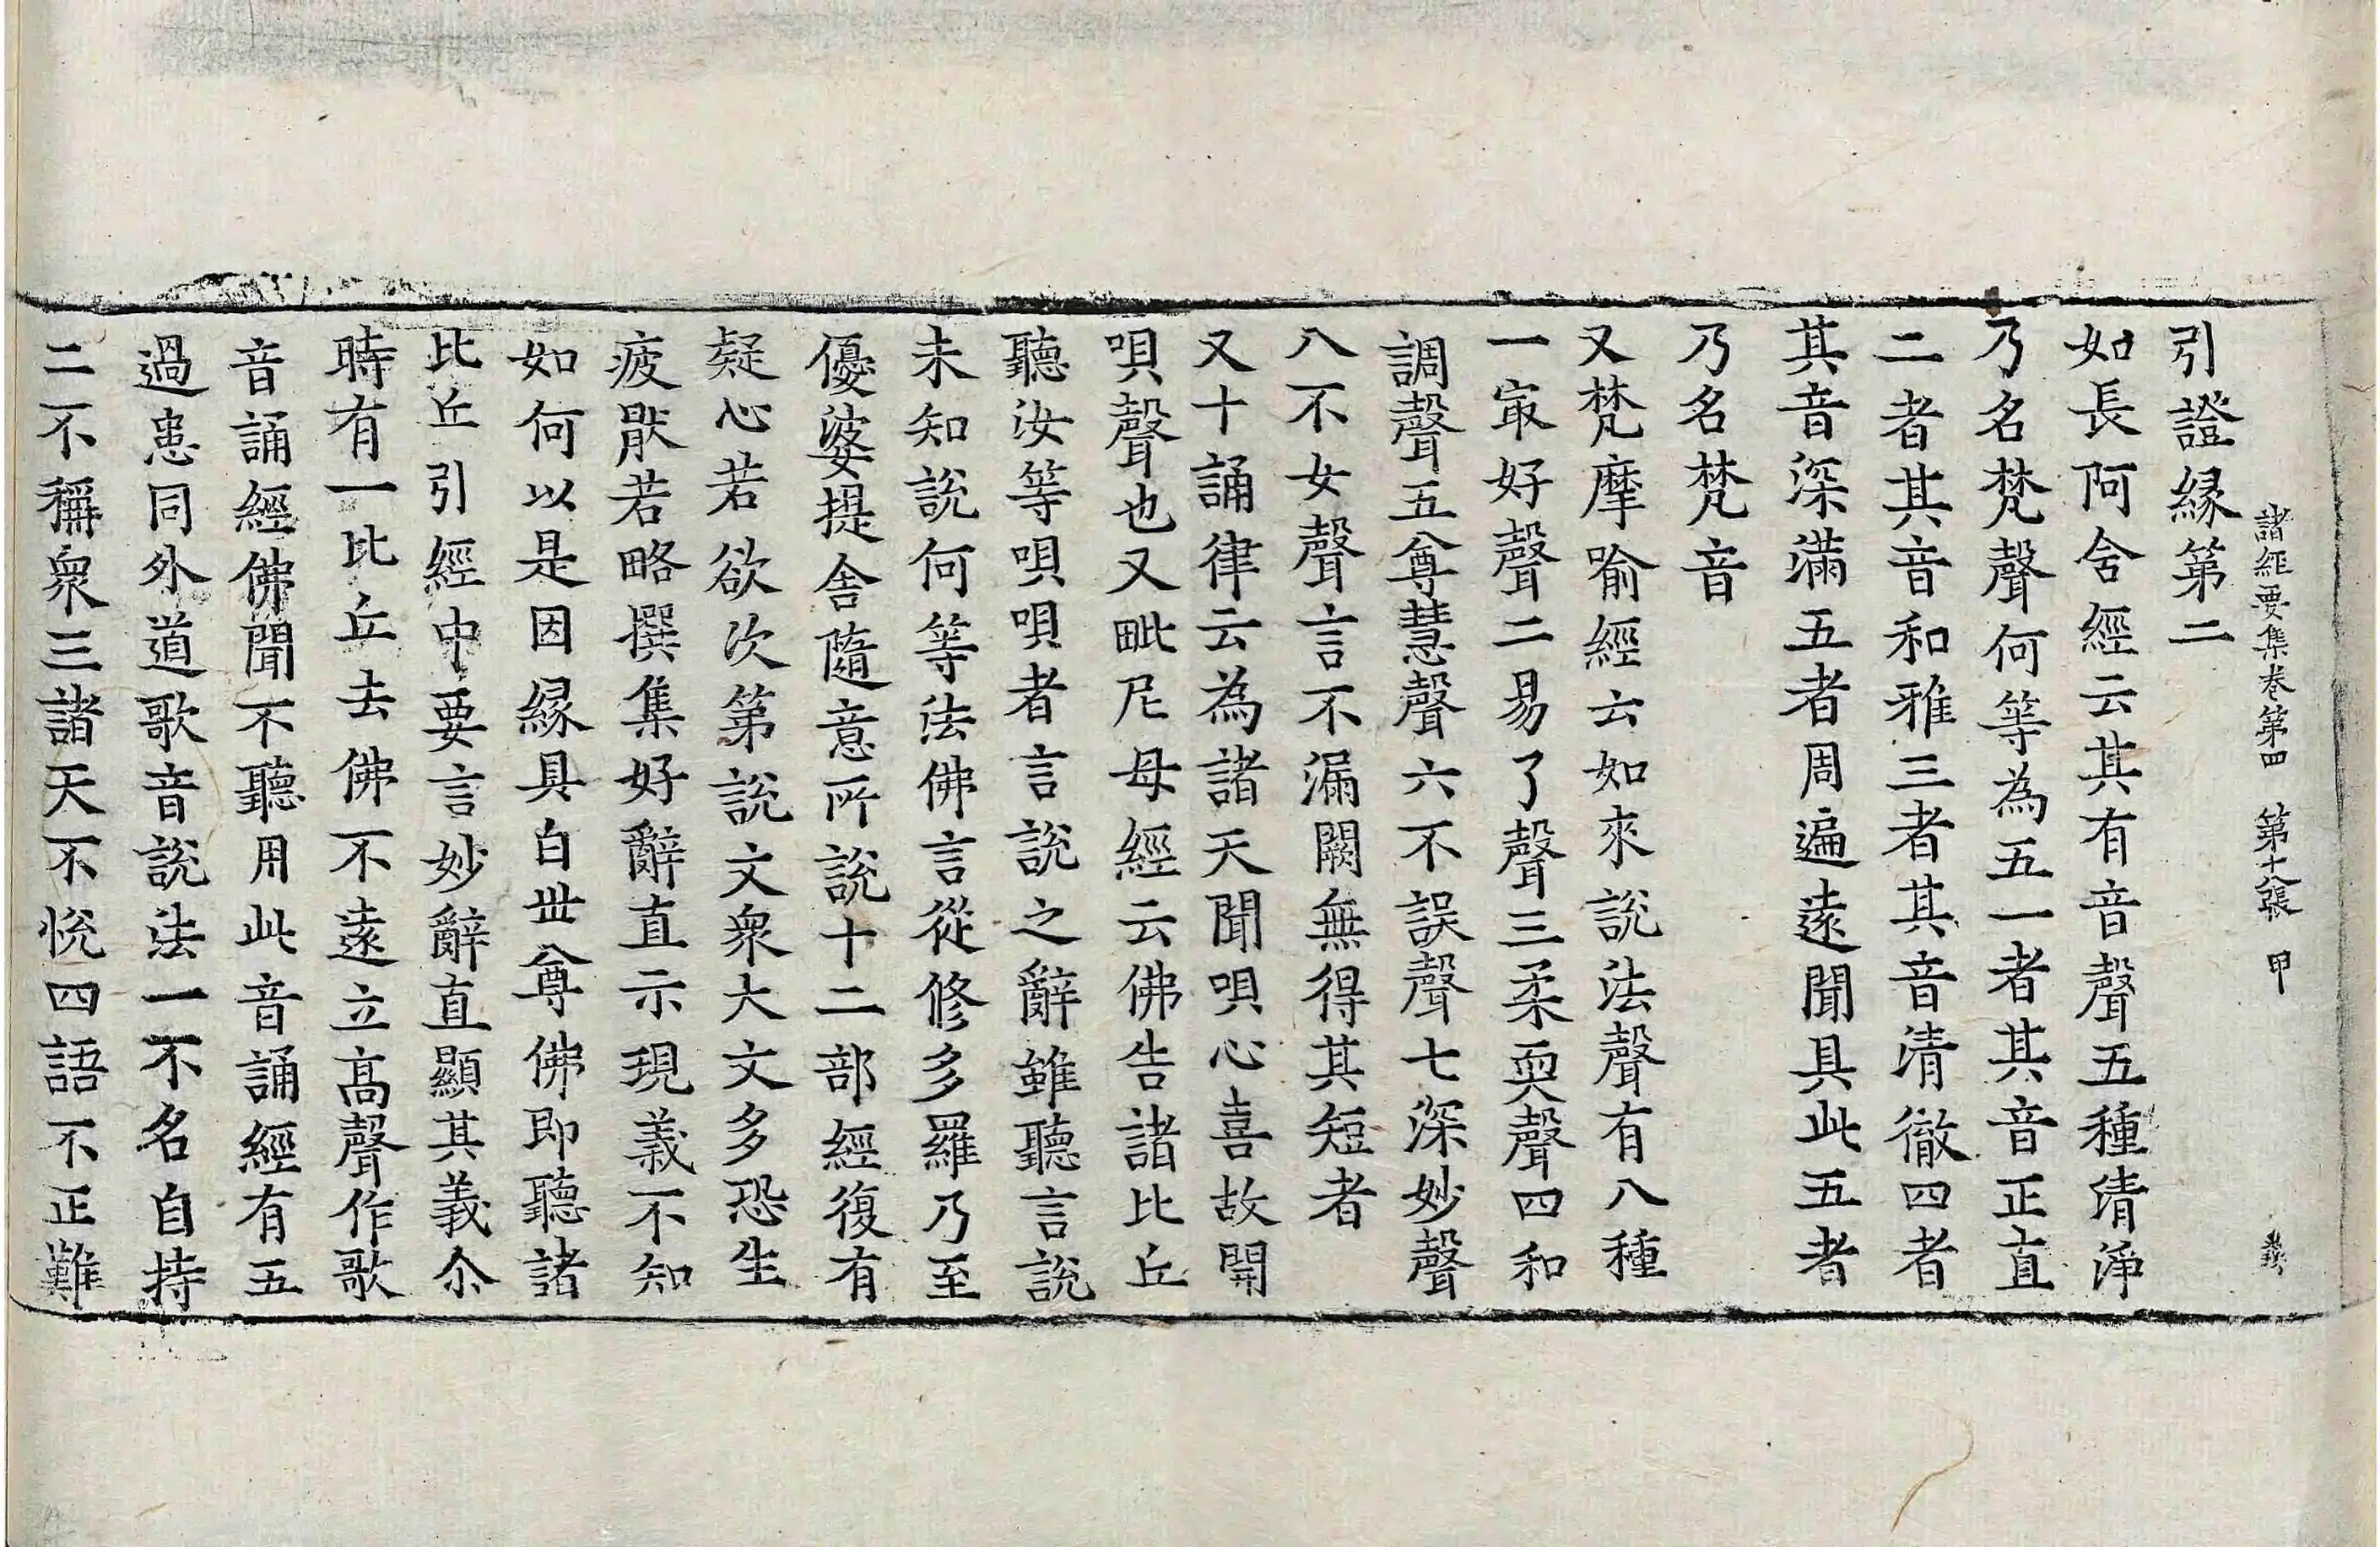 諸經要集卷第四　第十八張　甲
引證緣第二
如長阿舍經云其有音聲五種清淨
乃名梵聲何等為五一者其音正直
二者其音和雅三者其音清徹四者
其音深滿五者周遍遠聞具此五者
乃名梵音
又梵摩喻經云如來說法聲有八種
一㝡好聲二易了聲三柔耎聲四和
調聲五尊慧聲六不誤聲七深妙聲
八不女聲言不漏闕無得其短者
又十誦律云為諸天聞唄心喜故開
唄聲也又毗尼母經云佛告諸比丘
聽汝等唄唄者言說之辭雖聽言說
未知說何等法佛言從修多羅乃至
優婆提舍隨意所說十二部經復有
疑心若欲次第說文衆大文多恐生
疲猒若略撰集好辭直示現義不知
如何以是因緣具白世尊佛即聽諸
比丘引經中要言妙辭直顯其義尒
時有一比丘去佛不遠立高聲作歌
音誦經佛聞不聽用此音誦經有五
過患同外道歌音說法一不名自持
二不稱衆三諸天不悅四語不正難